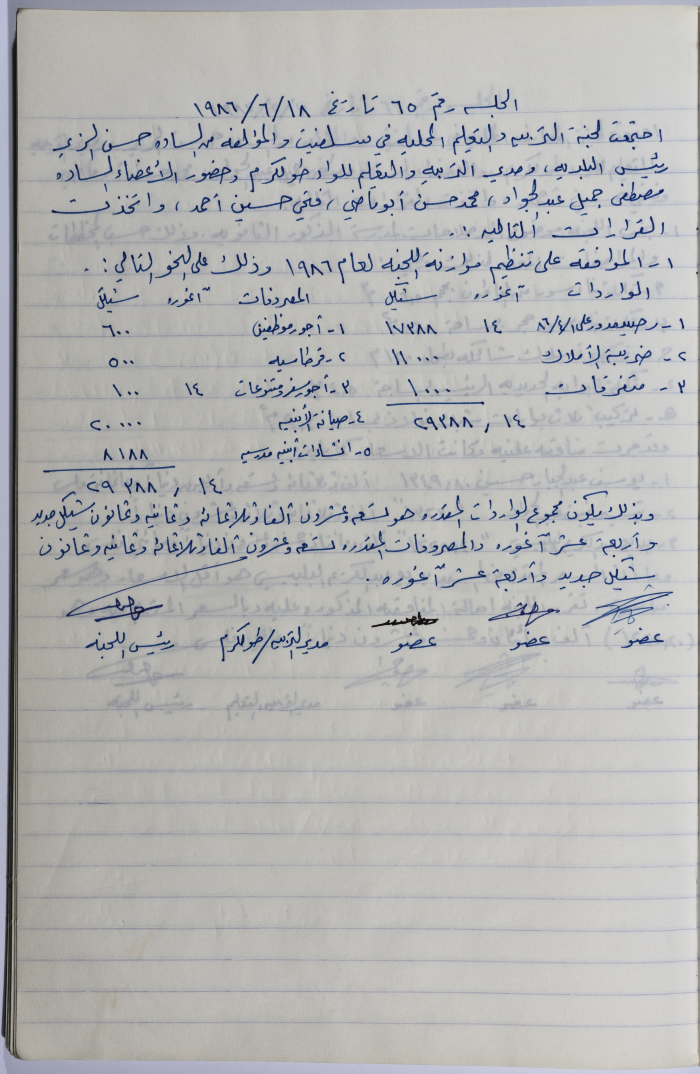 الجلسه رقم ٦٥ تاريخ ١٩٨٦/٦/١٨
اجتمعت لجنة التربيه والتعليم المحليه في سلفيت والمؤلفه من الساده حسن الزي
رئيس البلديه ، ومدير التربيه والتعليم للواء طولكرم وحضور الأعضاء الساده
مصطفى جميل عبد الجواد ، محمد حسن أبو ناصر ، فتحي حسين أحمد ، واتخذت
القرارات التاليه :.
١- الموافقه على تنظيم موازنة اللجنه لعام ١٩٨٦ وذلك على النحو التالي : .
الواردات آغوره شيكل المصروفات آغوره شيكل
١- رصيد مدور على ٨٦/٤/١ ١٤ ١٧٣٨٨ ١- أجور موظفين ٦٠٠
٢- ضريبة الأملاك ١١٠٠٠ ٢- قرطاسيه ٥٠٠
٣- متفرقات ١٠٠٠ ٣- أجور سفر ومتنوعات ١٤ ١٠٠
١٤ , ٢٩٣٨٨ ٤- صيانة الأبنيه ٢٠٠٠٠
٥- انشاءات أبنيه مدرسيه ٨١٨٨
١٤ , ٢٩٣٨٨
وبذلك يكون مجموع الواردات المقدره هو تسعه وعشرون ألفا وثلاثمائه وثمانيه وثمانون شيكل جديد
وأربعة عشر آغوره والمصروفات المقدره تسعه وعشرون ألفا وثلاثمائه وثمانيه وثمانون
شيكل جديد وأربعة عشر آغوره .
عضو عضو عضو مدير التربيه/طولكرم رئيس اللجنه